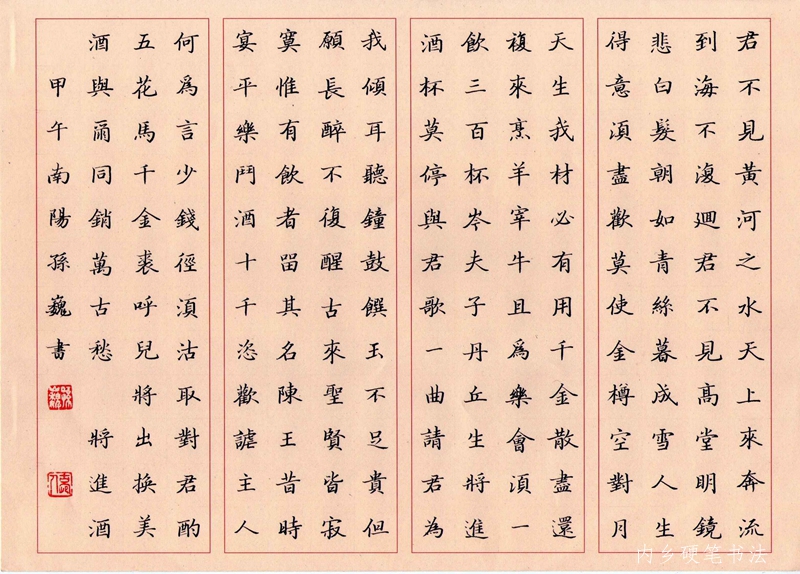 君不見黃河之水天上來奔流
到海不復迴君不見高堂明鏡
悲白髮朝如青絲暮成雪人生
得意須盡歡莫使金樽空對月
天生我材必有用千金散盡還
複來烹羊宰牛且爲樂會須一
飲三百杯岑夫子丹丘生將進
酒杯莫停與君歌一曲請君為
我傾耳聽鐘鼓饌玉不足貴但
願長醉不復醒古來聖賢皆寂
寞惟有飲者留其名陳王昔時
宴平樂鬥酒十千恣歡謔主人
何爲言少錢徑須沽取對君酌
五花馬千金裘呼兒將出換美
酒與爾同銷萬古愁 將進酒
甲午南陽孫巍書
内乡硬笔书法